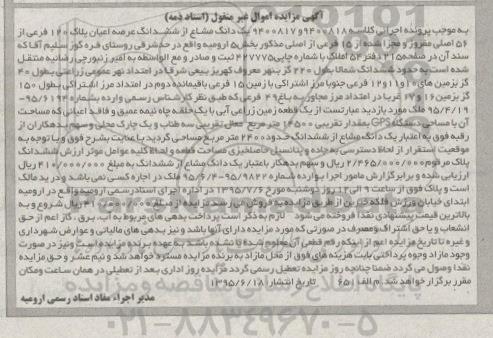 آگهی مزایده اموال غیر منقول (اسناد ذمه)
به موجب پرونده اجرائی کلاسه ۹۴۰۰۸۱۸ و ۹۴۰۰۸۱۷ یک دانگ مشاع از ششدانگ عرصه اعیان پلاک ۱۲۰ فرعی از
۵۶ اصلی مفروز و مجزا شده از ۱۵ فرعی از اصلی مذکور بخش ۵ ارومیه واقع در حدشرقی روستای قره گوز سلیم آقا که
سند آن در صفحه ۲۱۵ دفتر ۵۴ املاک با شماره چاپی ۴۲۷۷۷۵ ثبت و صادر و مع الواسطه به امیر زنبورچی رضائیه منتقل
شده است به حدود ششدانگ شمالا بطول ۲۲۰ گز بنهر معروف کهریز بیعی شرقا در امتداد نهر عمومی زراعتی بطول ۴۰
گز بزمین های ۱۰ و ۱۱ و ۱۲ فرعی جنوبا مرز اشتراکی با زمین ۱۵ فرعی باقیمانده دوم در امتداد مرز اشتراکی بطول ۱۵۰
گز بزمین ۱۶ و ۱۷ غربا در امتداد مرز مجاور به باغ ۴۹ فرعی که طبق نظر کارشناس رسمی وارده بشماره ۶۱۹۴-۹۵
۹۵/۴/۱۹ ملک مورد بازدید عبارتست از یک قطعه زمین زراعی آبی با یک حلقه چاه نیمه عمیق و فاقد اعیانی که مساحت
آن با مساحی دستگاه GPS بمقدار تقریبی ۱۴۵۰۰ متر مربع عمل تقریبی سه طناب و یک چارک محلی و سهم بدهکاران از
رقیه فوق به اعتبار یک دانگ مشاع از ششدانگ حدود ۲۴۰۰ متر مربع مساحی گردید با عنایت بشرح فوق و با توجه به
موقعیت استقرار از لحاظ دسترسی به جاده و پتانسیل حاصلخیزی مساحت قطعه و لحاظ کلیه عوامل موثر ارزش ششدانگ
پلاک مرقوم ۲/۴۶۵/۰۰۰/۰۰۰ ریال و سهم بدهکار باعتبار یک دانگ مشاع از ششدانگ به مبلغ ۴۱۰/۰۰۰/۰۰۰ ریال
ارزیابی شده و برابر گزارش مامور اجرا وارده شماره ۹۸۲۲-۹۵ ملک در اجاره کسی نمی باشد و در ید مالک
است و پلاک فوق از ساعت ۹ الی ۱۲ روز دوشنبه مورخ ۱۳۹۵/۷/۶ در اداره اجرای اسناد رسمی ارومیه واقع در ارومیه
ابتدای خیابان ورزش فلکه خزین از طریق مزایده به فروش می رسد مزایده از مبلغ ریال شروع و به
بالاترین قیمت پیشنهادی نقدا فروخته می شود لازم به ذکر است پرداخت بدهی های مربوطه به آب، برق، گاز اعم از حق
انشعاب و یا حق اشتراک و مصرف در صورتی که مورد مزایده دارای آنها باشد و نیز بدهی های مالیاتی و عوارض شهرداری
و غیره تا تاریخ مزایده اعم از اینکه رقم قطعی آن معلوم شده یا نشده باشد به عهده برنده مزایده است و نیز در صورت
وجود مازاد وجوه پرداختی بابت هزینه های فوق از محل مازاد به برنده مزایده مسترد خواهد شد و نیم عشر و حق مزایده
نقدا وصول می گردد ضمنا چنانچه روز مزایده تعطیل رسمی گردد مزایده روز اداری بعد از تعطیلی در همان ساعت ومکان
مقرر برگزار خواهد شد. م الف/ ۶۵ تاریخ انتشار: ۱۳۹۵/۶/۱۸
مدیر اجراء مفاد اسناد رسمی ارومیه
۰۲۱-۸۸۳۴۹۶۷۰-۵